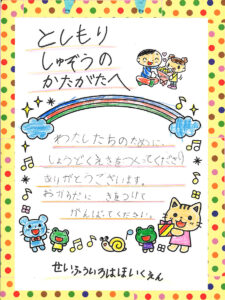 としもり
しゅぞうの
かたがたへ
わたしたちのために、
しょうどくえきをつくってくださり
ありがとうございます。
おからだに きをつけて
がんばってください。
せいふういろはほいくえん